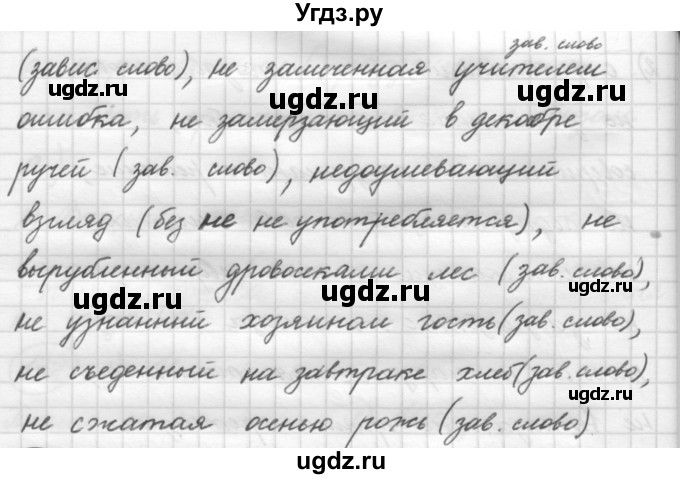 Угдз.ру
зав. слово
(завис слово), не замеченная учителем
ugdz.ru ugdz.ru ugdz.ru
ошибка, не замерзающий в декабре
ручей (зав. слово), недоумевающий
ugdz.ru ugdz.ru
взгляд (без не не употребляется), не
вырубленный дровосеками лес (зав. слово),
ugdz.ru ugdz.ru ugdz.ru
не узнанный хозяином гость (зав. слово),
не съеденный на завтраке хлеб (зав. слово),
ugdz.ru ugdz.ru ugdz.ru
не сжатая осенью рожь (зав. слово)
ugdz.ru